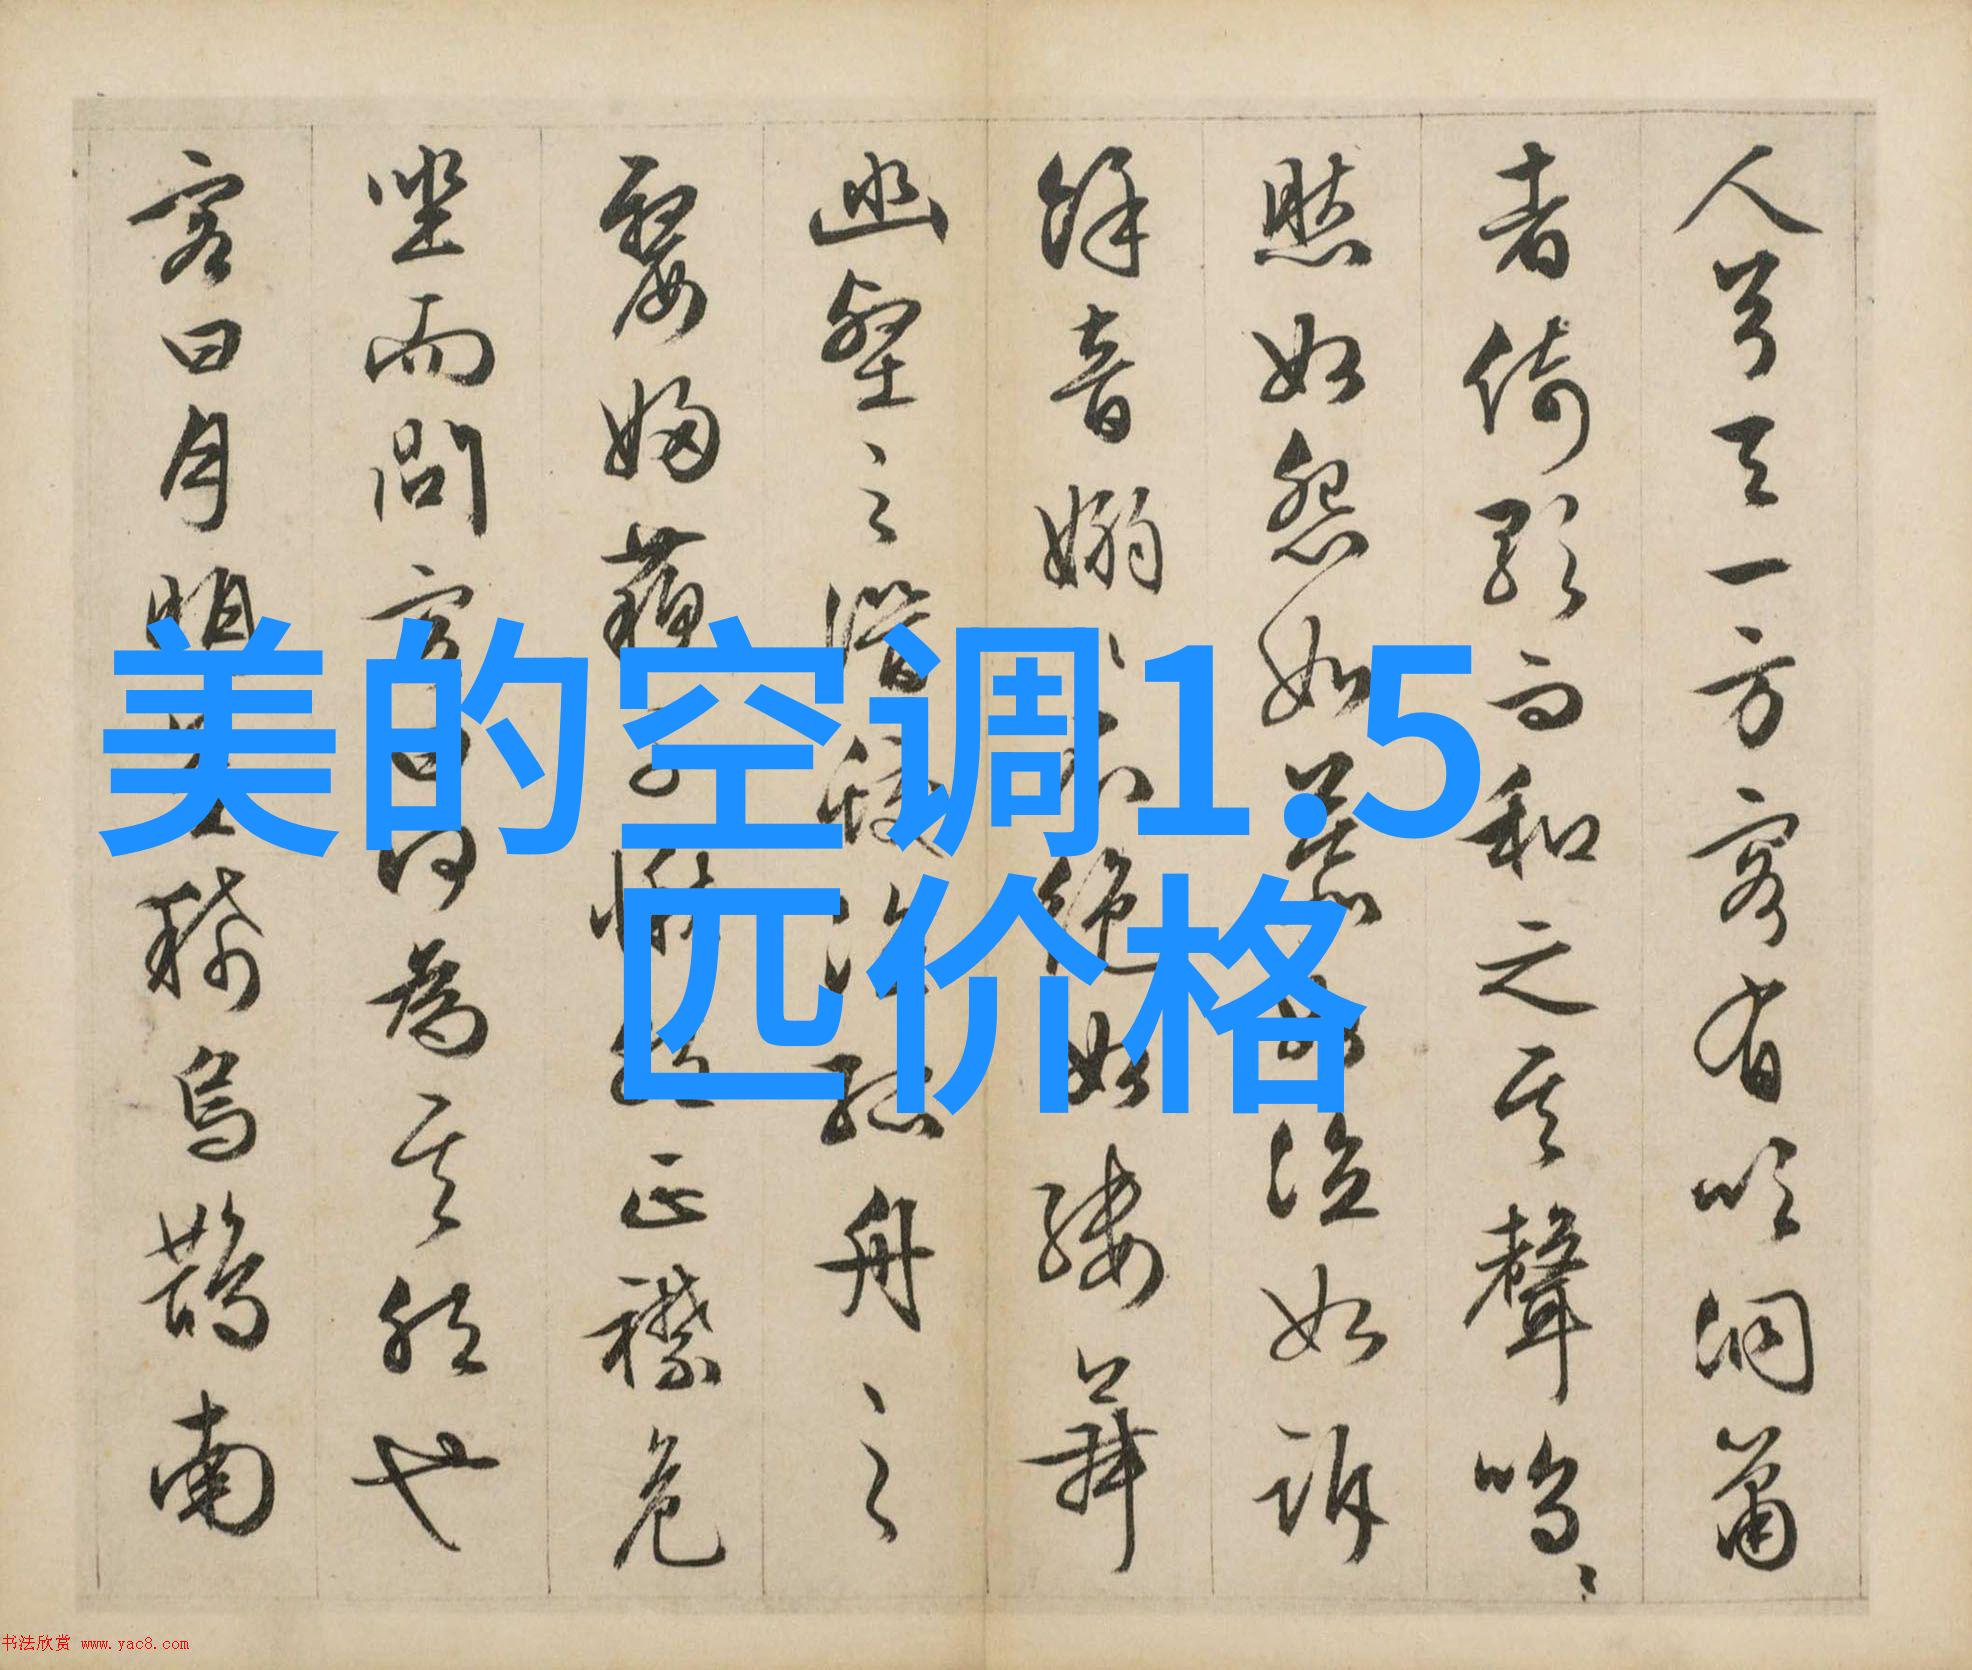 人兮天一方客有吹洞簫
者倚歌而和之其聲嗚〻
然如怨如慕如泣如訴
餘音嫋〻不絕如縷舞
幽壑之潛蛟泣孤舟之
嫠婦蘇子愀然正襟危
坐而問客曰何為其然也
客曰月明星稀烏鵲南
美的空调1.5
匹价格
书法欣赏 www.yac8.com